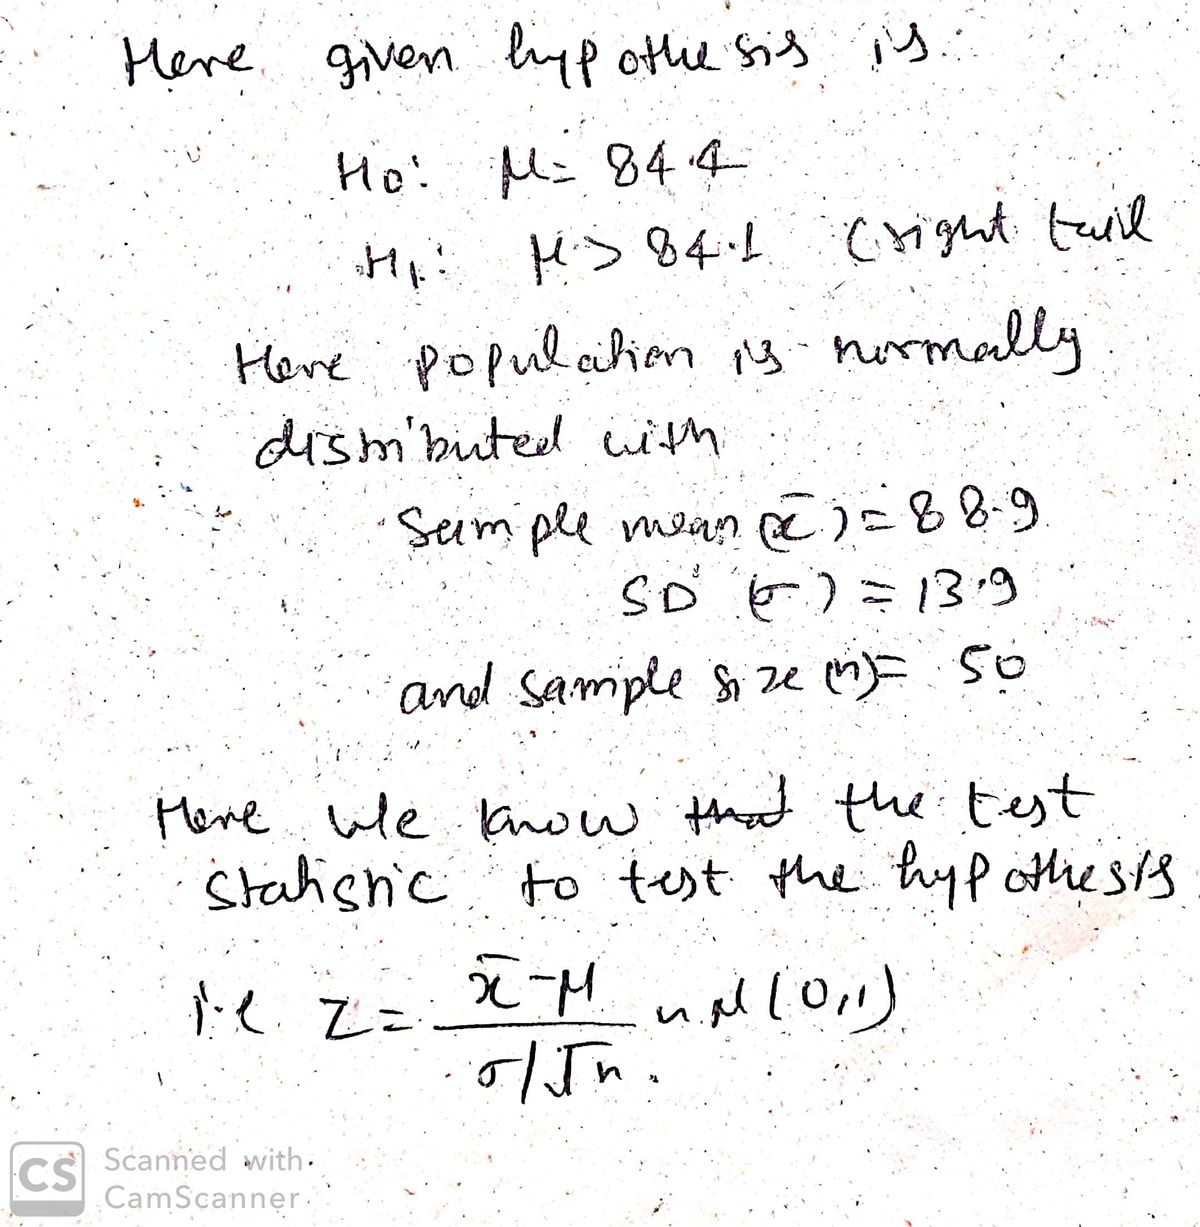 Here given hypothesis is
H0: μ = 84.4
H1: μ > 84.1 (right tail
Here population is normally
distributed with
Sample mean (x̄) = 88.9
SD (σ) = 13.9
and sample size (n) = 50
Here we know that the test
statistic to test the hypothesis
i.e z = x̄-μ / σ/√n ~ N(0,1)
CS Scanned with
CamScanner